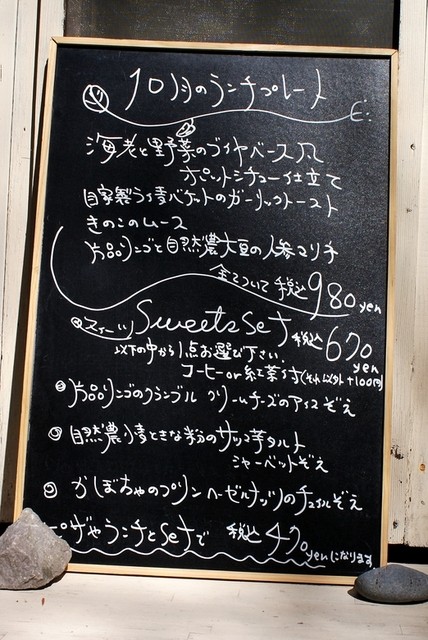 10月のランチプレート
海老と野菜のブイヤベース風
ポットシチュー仕立て
自家製バゲットのガーリックトースト
きのこのムース
片品リンゴと自然農大豆の人参マリネ
全てついて 税込 980 yen
スイーツ Sweets Set 税込 670 yen
以下の中から1点お選び下さい。
コーヒー or 紅茶付 (それ以外+100円)
片品リンゴのクランブル クリームチーズのアイスぞえ
自然農きな粉のサツマ芋タルト
シャーベットぞえ
かぼちゃのプリン ヘーゼルナッツのチュイルぞえ
ピザやランチと Setで 税込 470 yen になります